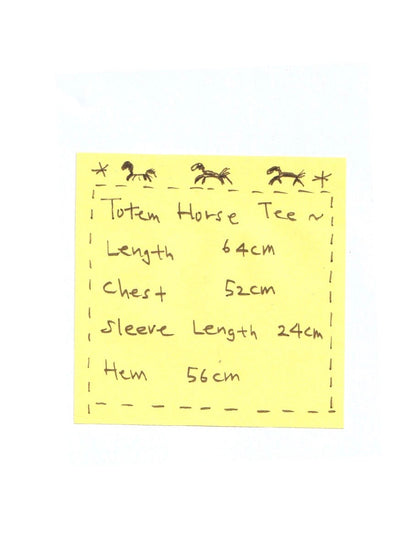 Totem Horse Tee ~
Length 64cm
Chest 52cm
Sleeve Length 24cm
Hem 56cm